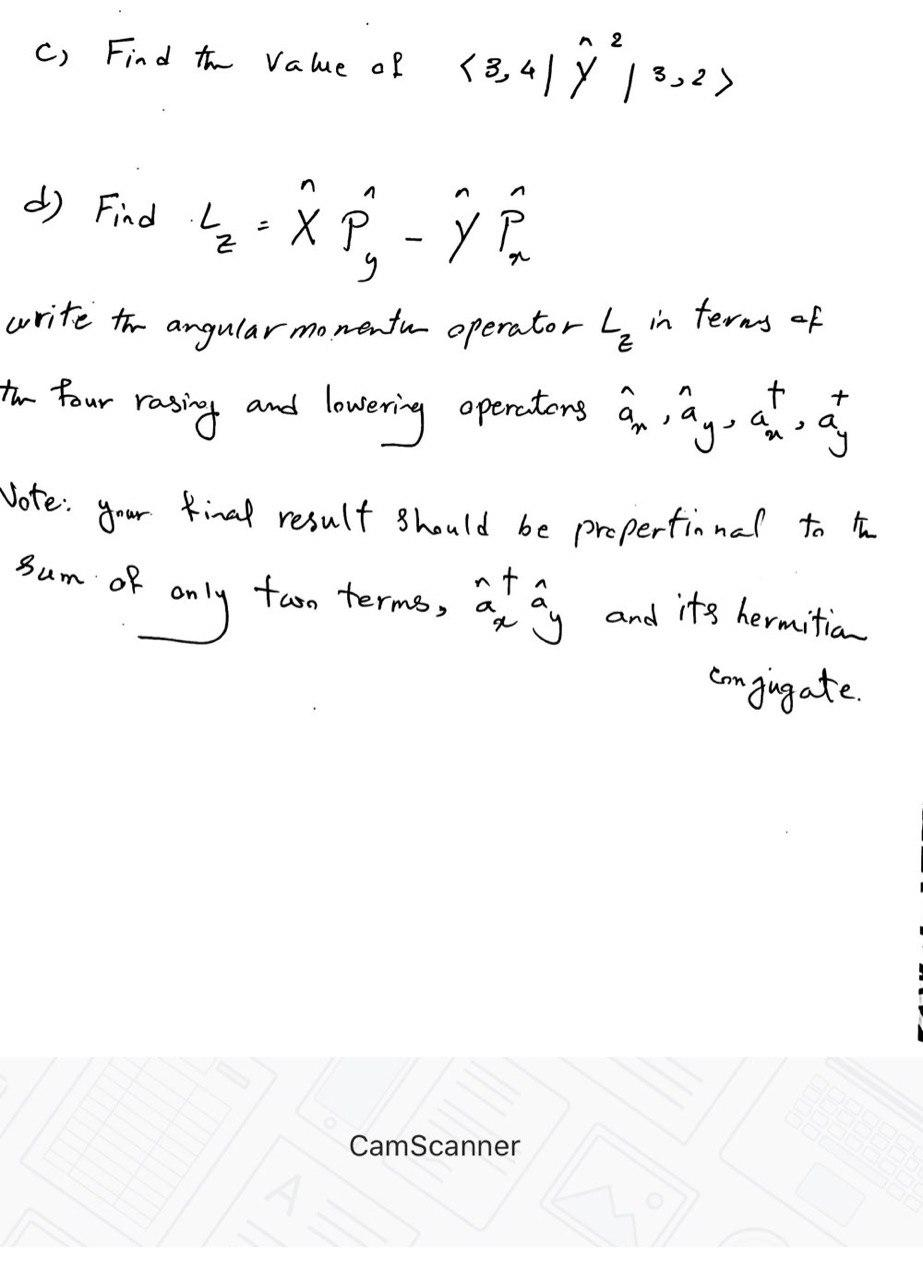 c) Find the value of <3,4| Ŷ² |3,2>
d) Find L_z = X̂ P̂_y - Ŷ P̂_x
write the angular momentum operator L_z in terms of
the four rasing and lowering operators â_x, â_y, a†_x, a†_y
Note: your final result should be propertinnal to the
sum of only two terms, â†_x â_y and its hermitian
conjugate.
CamScanner